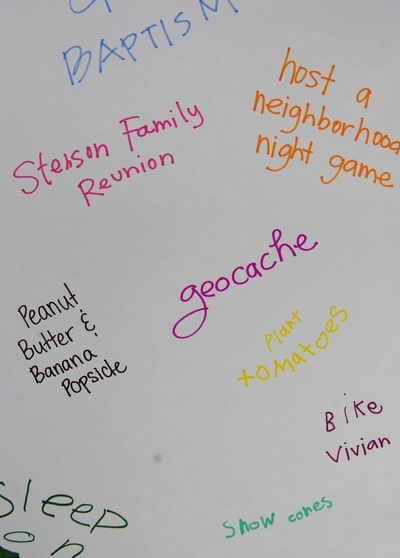 BAPTISM
host a
neighborhood
night game
Stenson Family
Reunion
geocache
Peanut
Butter &
Banana
Popsicle
Plant
tomatoes
Bike
Vivian
Sleep
on
Snow cones